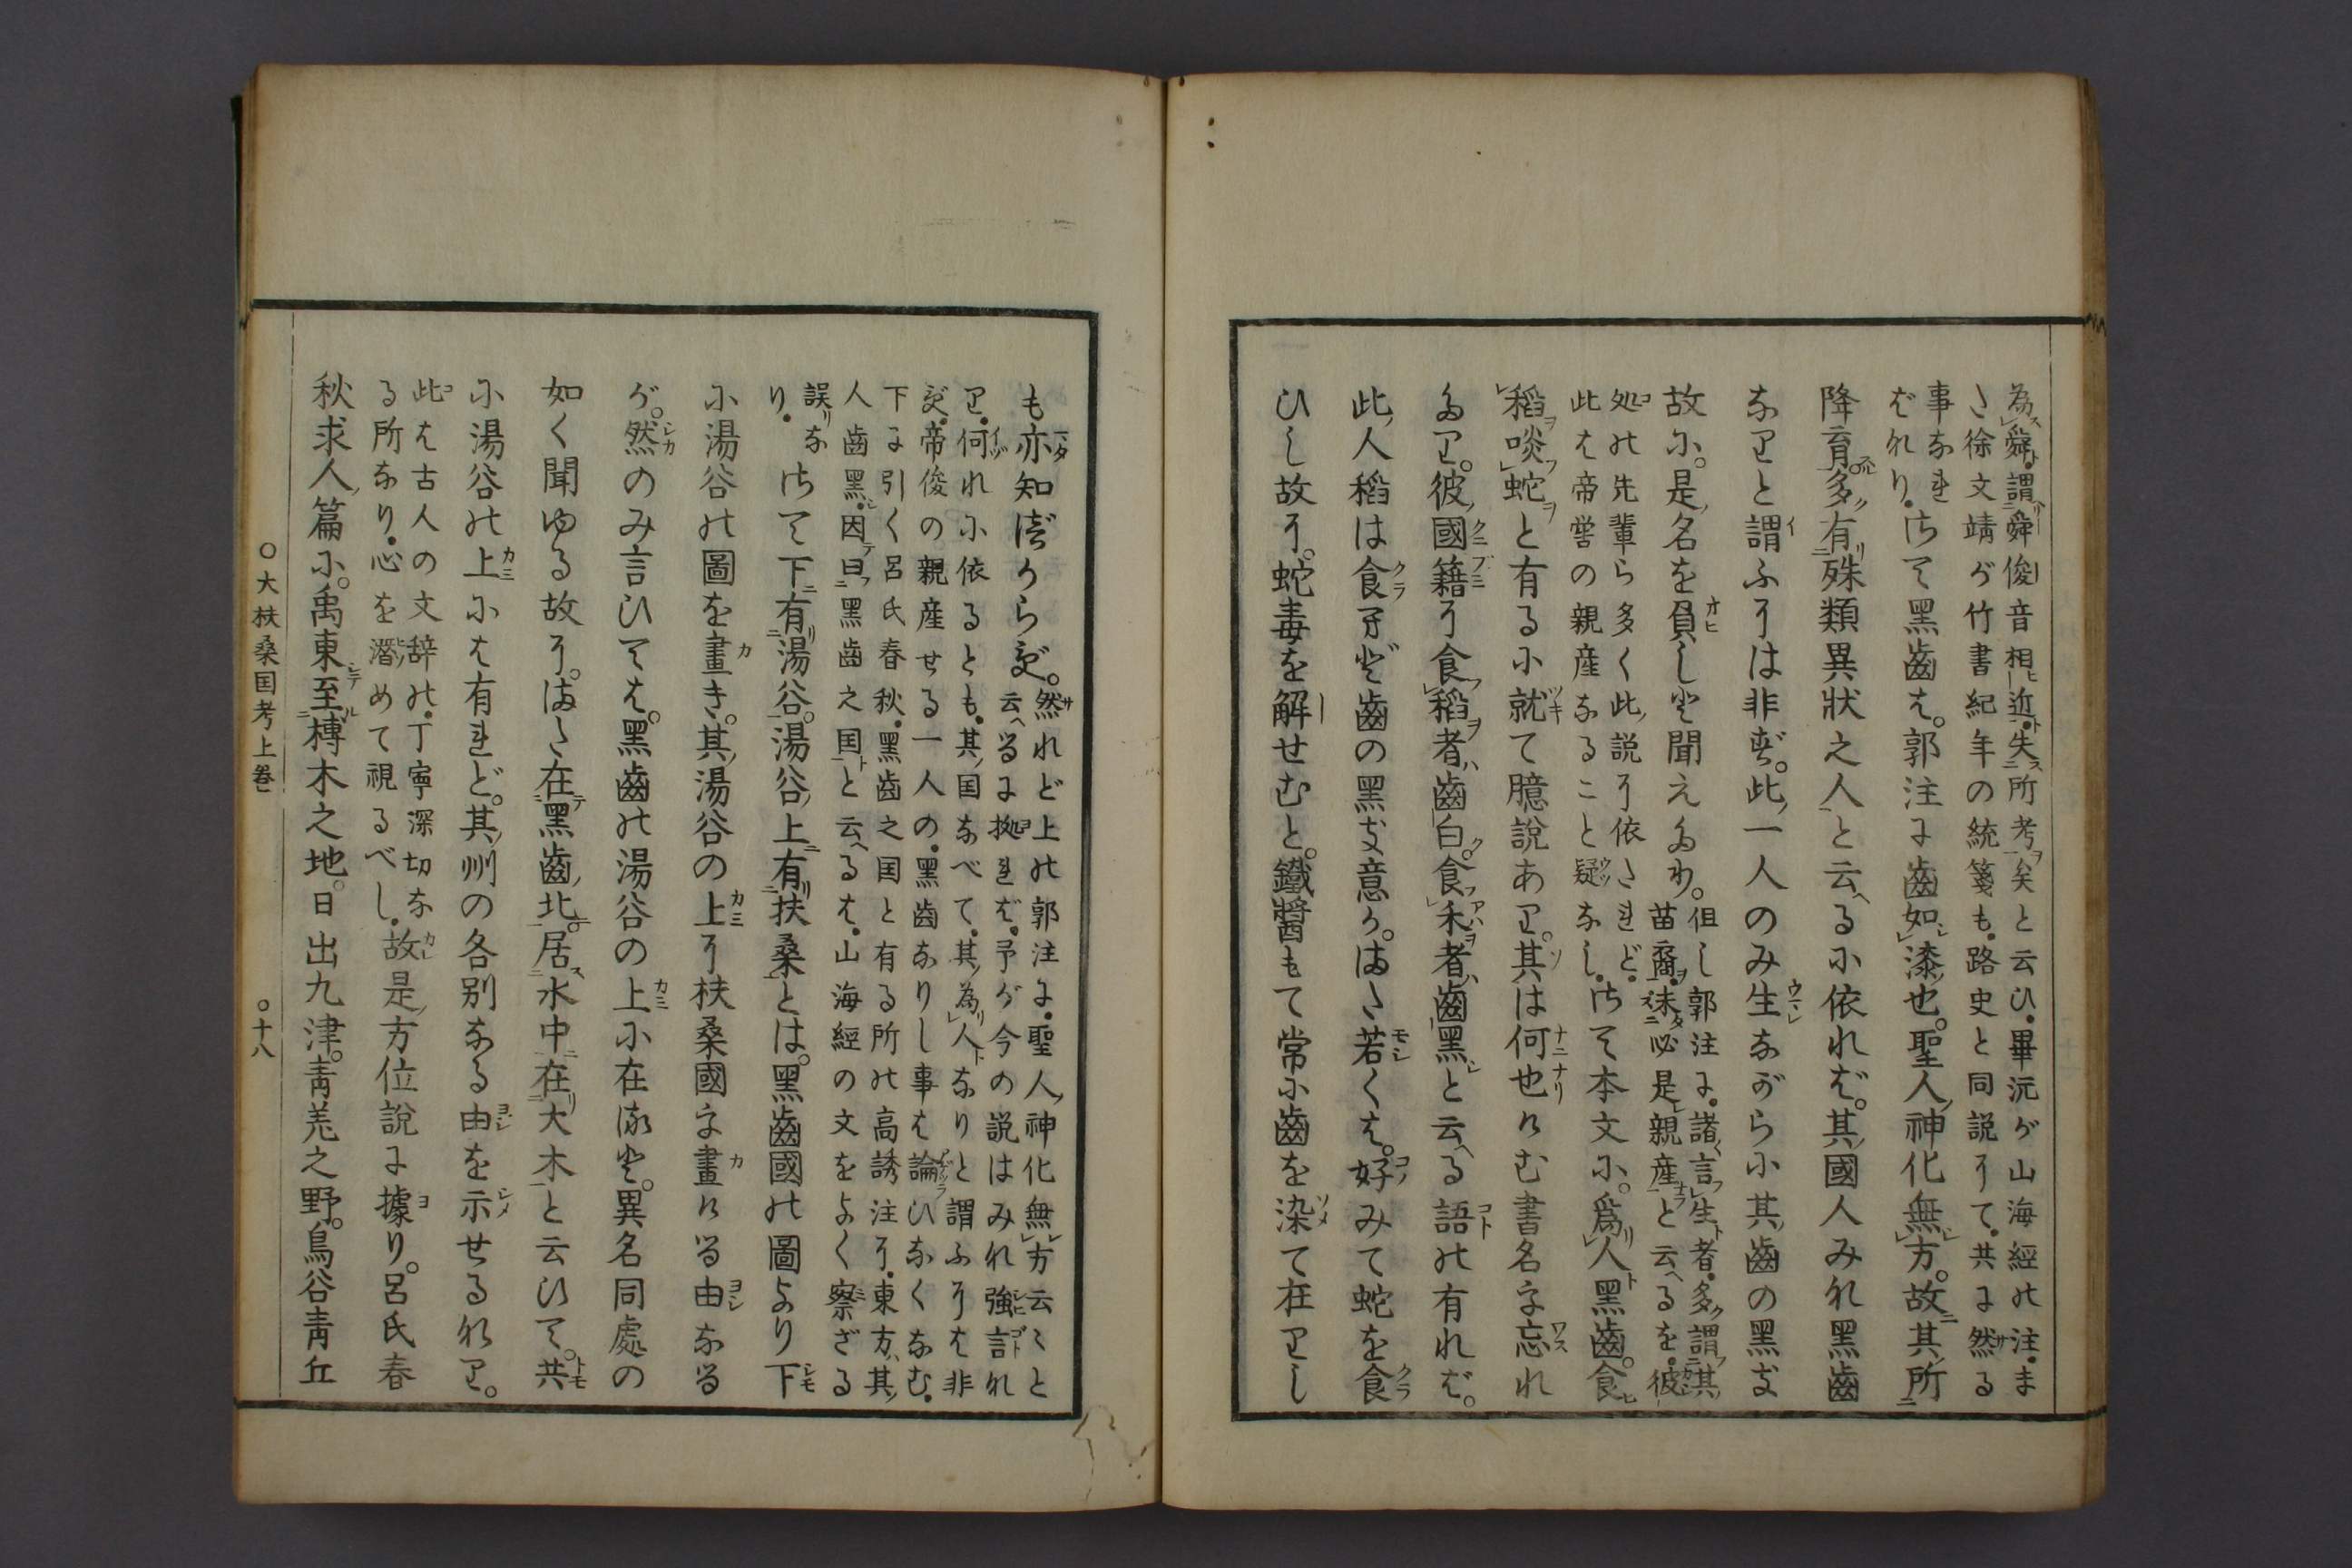 為舜。謂舜俊音相近。失所考矣と云ひ。畢沅が山海經の注。ま
た徐文靖が竹書紀年の統箋も。路史と同説にて。共に然る
事なれ
ばなり。
さて黑齒は。郭注に齒如漆也。聖人神化無方。故其所
降育多有殊類異狀之人と云へるに依れば。其國人みな黑齒
なりと謂ふには非ず。此一人のみ生ながらに其齒の黑き
故に。是名を負しと聞えたり。
但し郭注に。諸言生者。多謂其
苗裔。未必是親産と云へるを。彼
処の先輩ら多く此説に依されど。
此は帝嚳の親産なること疑なし。
さて本文に。爲人黑齒。食
稻啖蛇と有るに就て臆說あり。其は何也けむ書名を忘れ
たり。彼國籍に食稻者齒白。食禾者齒黑と云へる語の有れば。
此人稻は食まど齒の黑き意か。また若くは。好みて蛇を食
ひし故に。蛇毒を解せむと。鐵醬もて常に齒を染て在りし
も亦知べからず。
然れど上の郭注に。聖人神化無方云々と
云へるに拠れば。予が今の説はみな強言な
り。何れに依るとも。其国なべて。其為人なりと謂ふには非
ず。帝俊の親産せる一人の。黑齒なりし事は論ひなくなむ。
下に引く呂氏春秋。黑齒之国と有る所の高誘注に。東方其
人齒黑。因曰黑齒之国と云へるは。山海經の文をよく察ざる
誤な
り。
さて下有湯谷。湯谷上有扶桑とは。黑齒國の圖より下
に湯谷の圖を畫き。其湯谷の上に扶桑國を畫ける由なる
が。然のみ言ひては。黑齒の湯谷の上に在ると。異名同處の
如く聞ゆる故に。また在黑齒北。居水中在大木と云ひて。共
に湯谷の上には有れど。其州の各別なる由を示せるなり。
此は古人の文辞の。丁寧深切な
る所なり。心を潛めて視るべし。
故是方位說に據り。呂氏春
秋求人篇に。禹東至榑木之地。日出九津。靑羌之野。鳥谷靑丘
○大扶桑国考上巻　○十八